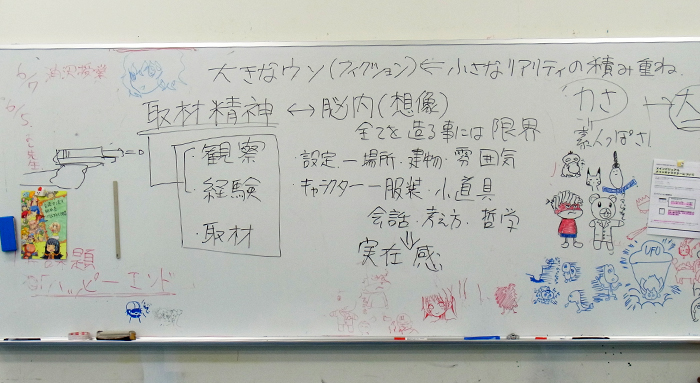 大きなウソ(フィクション)⇐小さなリアリティの積み重ね.
取材精神 ↔ 脳内(想像)
全てを造る事には限界
・観察
・経験
・取材
設定 ー 場所・建物・雰囲気
・キャラクター ー 服装・小道具
会話・考え方・哲学
⇓
実在感
力さ → 大
素人っぽさ
6/7
6/5
題
ハッピーエンド
UFO